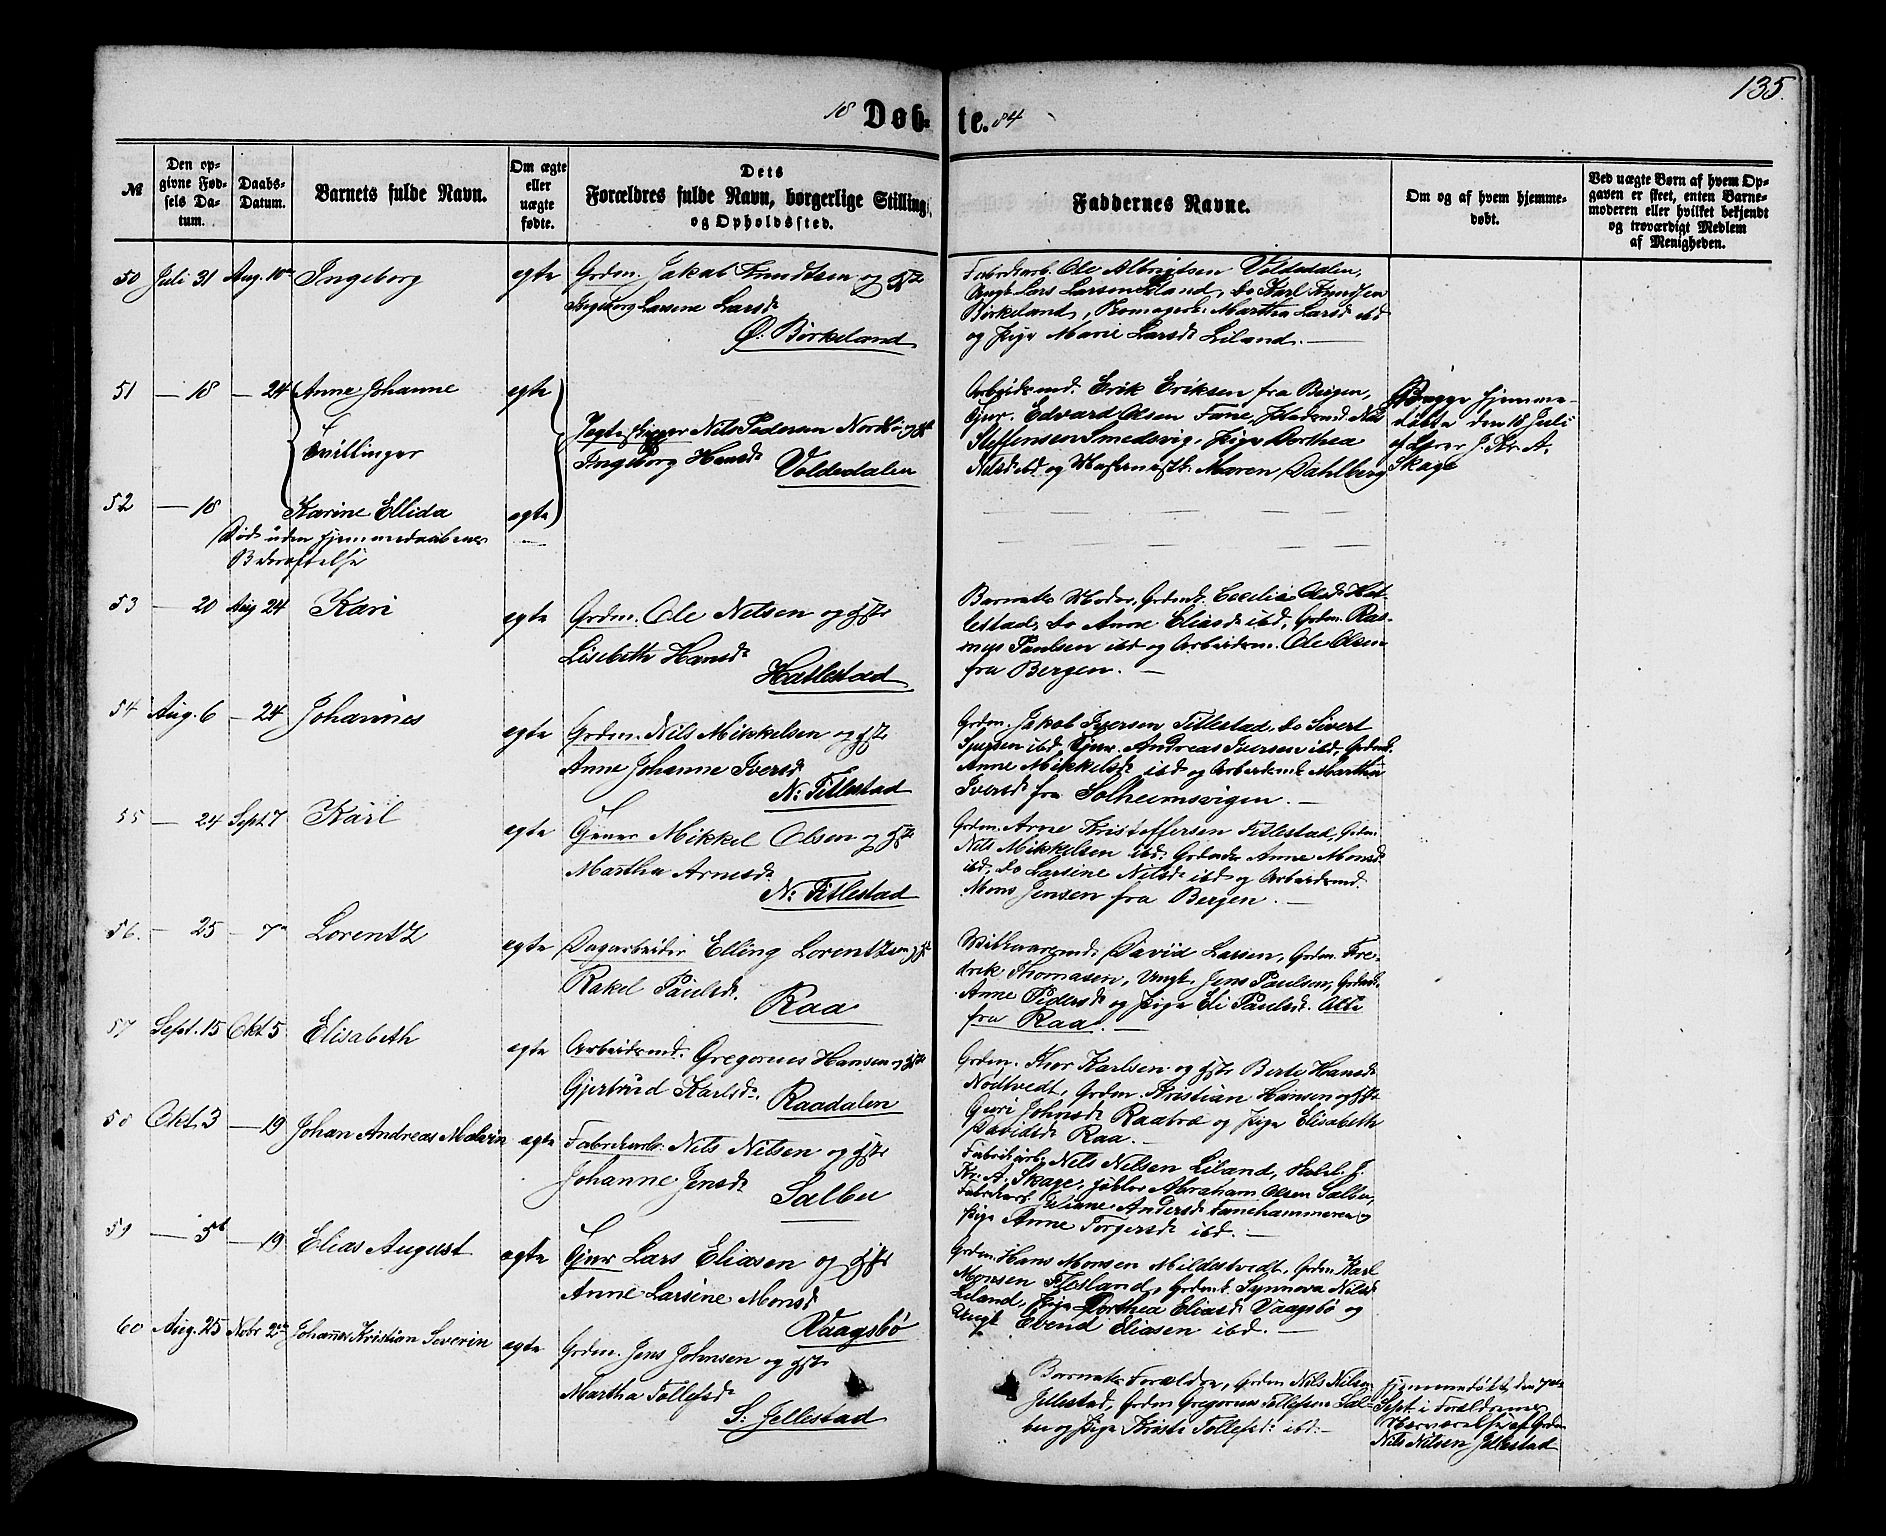 135.
18 Døb- te. 84
№
Den op-
givne Fød-
sels Da-
tum.
Daabs-
Datum.
Barnets fulde Navn.
Om ægte
eller
uægte
fødte.
Dets
Forældres fulde Navn, borgerlige Stilling,
og Opholdssted.
Faddernes Navne.
Om og af hvem hjemme-
døbt.
Ved uægte Børn af hvem Op-
gaven er skeet, enten Barne-
moderen eller hvilket bekjendt
og troværdigt Medlem
af Menigheden.
50 Juli 31 Aug. 10de Ingeborg egte Grdm. Jakob Knudtsen og Hste
Ingeborg Larsene Larsd.
Ø. Birkeland
Fabrikarb. Ole Albrigtsen Voldedalen,
Ungk Lars Larsen Liland, do Karl Knudsen
Birkeland, Martha Larsd. ibd
og Pige Marie Larsd. Liland. —
51 — 18 — 24 Anne Johanne egte
Tvillinger
Jegteskipper Nils Pedersen Nordbø og Hst
Ingeborg Hansd.
Voldedalen
Arbeidsmd. Erik Eriksen fra Bergen,
Gjør. Edvard Olsen Fane, Pladsmd. Nils
Steffensen Smedsvig, Pige Dorthea
Nilsd. ibd og Maren Dahlberg
Begge hjemme-
døbte den 18 Juli
af Lærer J. Kr. A.
Skage
52 — 18 Karine Ellida egte
Død uden hjemmedaabens
Bekræftelse
53 — 20 Aug 24 Kari egte Grdm. Ole Nilsen og Hste
Lisebeth Hansd.
Hatlestad
Barnets Moder, Grdmk. Cecilie Olsd. Hat-
lestad, do Anne Eliasd. ibd, Grdm. Ras-
mus Paulsen ibd og Arbeidsm. Ole Olsen
fra Bergen. —
54 Aug. 6 — 24 Johannes egte Grdm. Nils Mikkelsen og Hste
Anne Johanne Iversd.
N: Titlestad
Grdm. Jakob Iversen Titlestad, do Sivert
Sjursen ibd, Gjør. Andreas Iversen ibd, Grdmk.
Anne Mikkelsd. ibd og Arbeidsmk. Martha
Iversd. fra Solheimsvigen. —
55 — 24 Sept 7 Karl egte Gjører Mikkel Olsen og Hste
Martha Arnesd.
N: Titlestad
Grdm. Arne Kristoffersen Titlestad, Grdm.
Nils Mikkelsen ibd. Grdmk. Anne Monsd.
ibd, do Larsine Nilsd. ibd og Arbeidsmd.
Mons Jensen fra Bergen. —
56. — 25 — 7de Lorentz egte Dagarbeider Elling Lorentzsen og Hst
Rakel Paulsd.
Raa
David Larsen, Grdm. Fre-
drik Thomasen, Ungk. Jens Paulsen, Grdmk.
Anne Pedersd. og Pige Eli Paulsd. Alle
fra Raa. —
57 Sept. 15 Okt 5 Elisabeth egte Arbeidsmd. Gregorius Hansen og Hste
Gjertrud Karlsd.
Raadalen
Grdm. Thor Karlsen og Hste Berte Hansd.
Nødtvedt, Grdm. Kristian Hansen og Hste
Guri Johnsd. Raabrø og Pige Elisabeth
Davidsd. Raa. —
58 Okt. 3 — 19 Johan Andreas Malvin egte Fabrikarb. Nils Nilsen og Hste
Johanne Jensd.
Sælbu
Fabrikarb. Nils Nilsen Liland, J.
Kr. A. Skage, Abraham Olsen Sælbu,
Fabrikarb. Andersd. Fanehammeren og
Pige Anne Torgersd. ibd. —
59 — 5te — 19 Elias August egte Gjør Lars Eliasen og Hste
Anne Larsine Monsd.
Vaagsbø
Grdm. Hans Monsen Mildestvedt, Grdm. Karl
Monsen Flesland, Grdmk. Synneva Nilsd
Liland, Pige Dorthea Eliasd. Vaagsbø og
Ungk Edvend Eliasen ibd. —
60 Aug. 25 Novbr 2den Johannes Kristian Severin egte Grdm. Jens Johnsen og Hste
Martha Tollefsd.
S: Jellestad
Barnets Forældre, Grdm Nils Nilsen
Jellestad, Grdm Gregorius Tollefsen Sæl-
bu og Pige Kristi Tollefsd. ibd. —
Hjemmedøbt den 7de
Sept. i Forældrenes
Nærværelse af Grdm
Nils Nilsen Jellestad